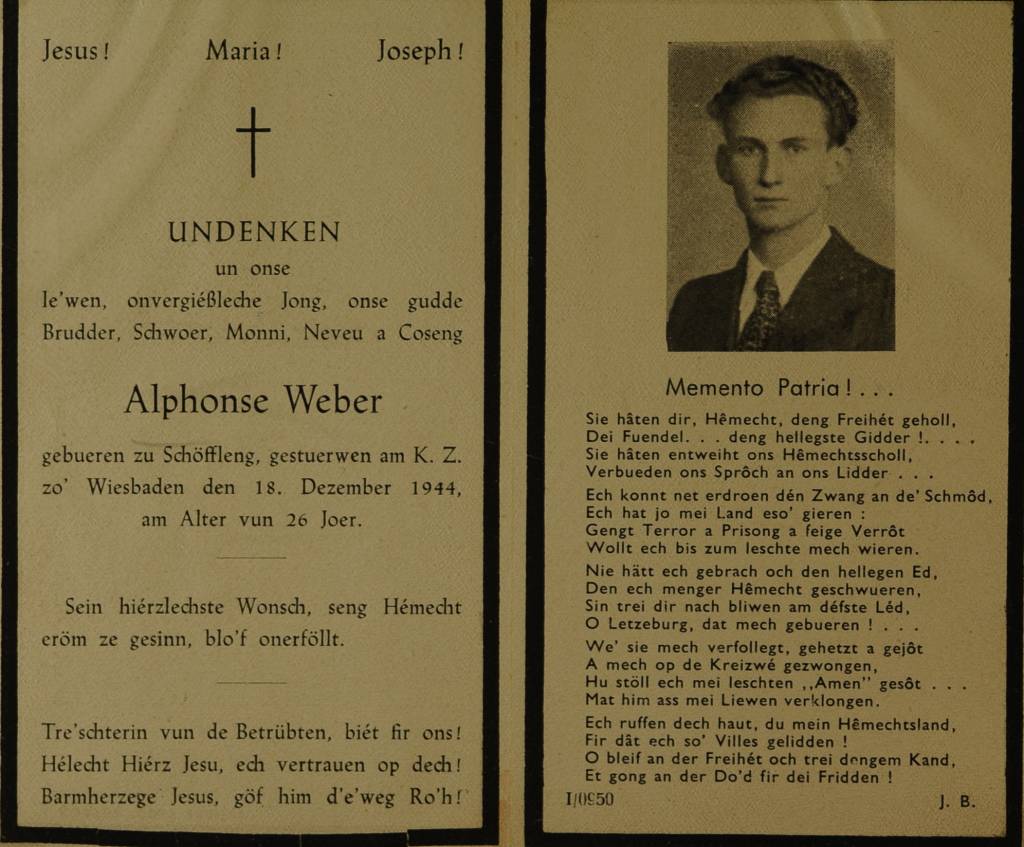 Jesus! Maria! Joseph!
UNDENKEN
un onse
le'wen, onvergiéßleche Jong, onse gudde
Brudder, Schwoer, Monni, Neveu a Coseng
Alphonse Weber
gebueren zu Schöffleng, gestuerwen am K. Z.
zo' Wiesbaden den 18. Dezember 1944,
am Alter vun 26 Joer.
Sein hiérzlechste Wonsch, seng Hémecht
eröm ze gesinn, blo'f onerföllt.
Tre'schterin vun de Betrübten, biét fir ons!
Hélecht Hiérz Jesu, ech vertrauen op dech!
Barmherzege Jesus, göf him d'e'weg Ro'h!
Memento Patria! . . .
Sie hâten dir, Hêmecht, deng Freihét geholl,
Dei Fuendel. . . deng hellegste Gidder !. . . .
Sie hâten entweiht ons Hêmechtsscholl,
Verbueden ons Sprôch an ons Lidder . . .
Ech konnt net erdroen dén Zwang an de' Schmôd,
Ech hat jo mei Land eso' gieren :
Gengt Terror a Prisong a feige Verrôt
Wollt ech bis zum leschte mech wieren.
Nie hätt ech gebrach och den hellegen Ed,
Den ech menger Hêmecht geschwueren,
Sin trei dir nach bliwen am défste Léd,
O Letzeburg, dat mech gebueren ! . . .
We' sie mech verfollegt, gehetzt a gejôt
A mech op de Kreizwé gezwongen,
Hu stöll ech mei leschten ,,Amen" gesôt . . .
Mat him ass mei Liewen verklongen.
Ech ruffen dech haut, du mein Hêmechtsland,
Fir dât ech so' Villes gelidden !
O bleif an der Freihét och trei dengem Kand,
Et gong an der Do'd fir dei Fridden !
I/0950 J. B.